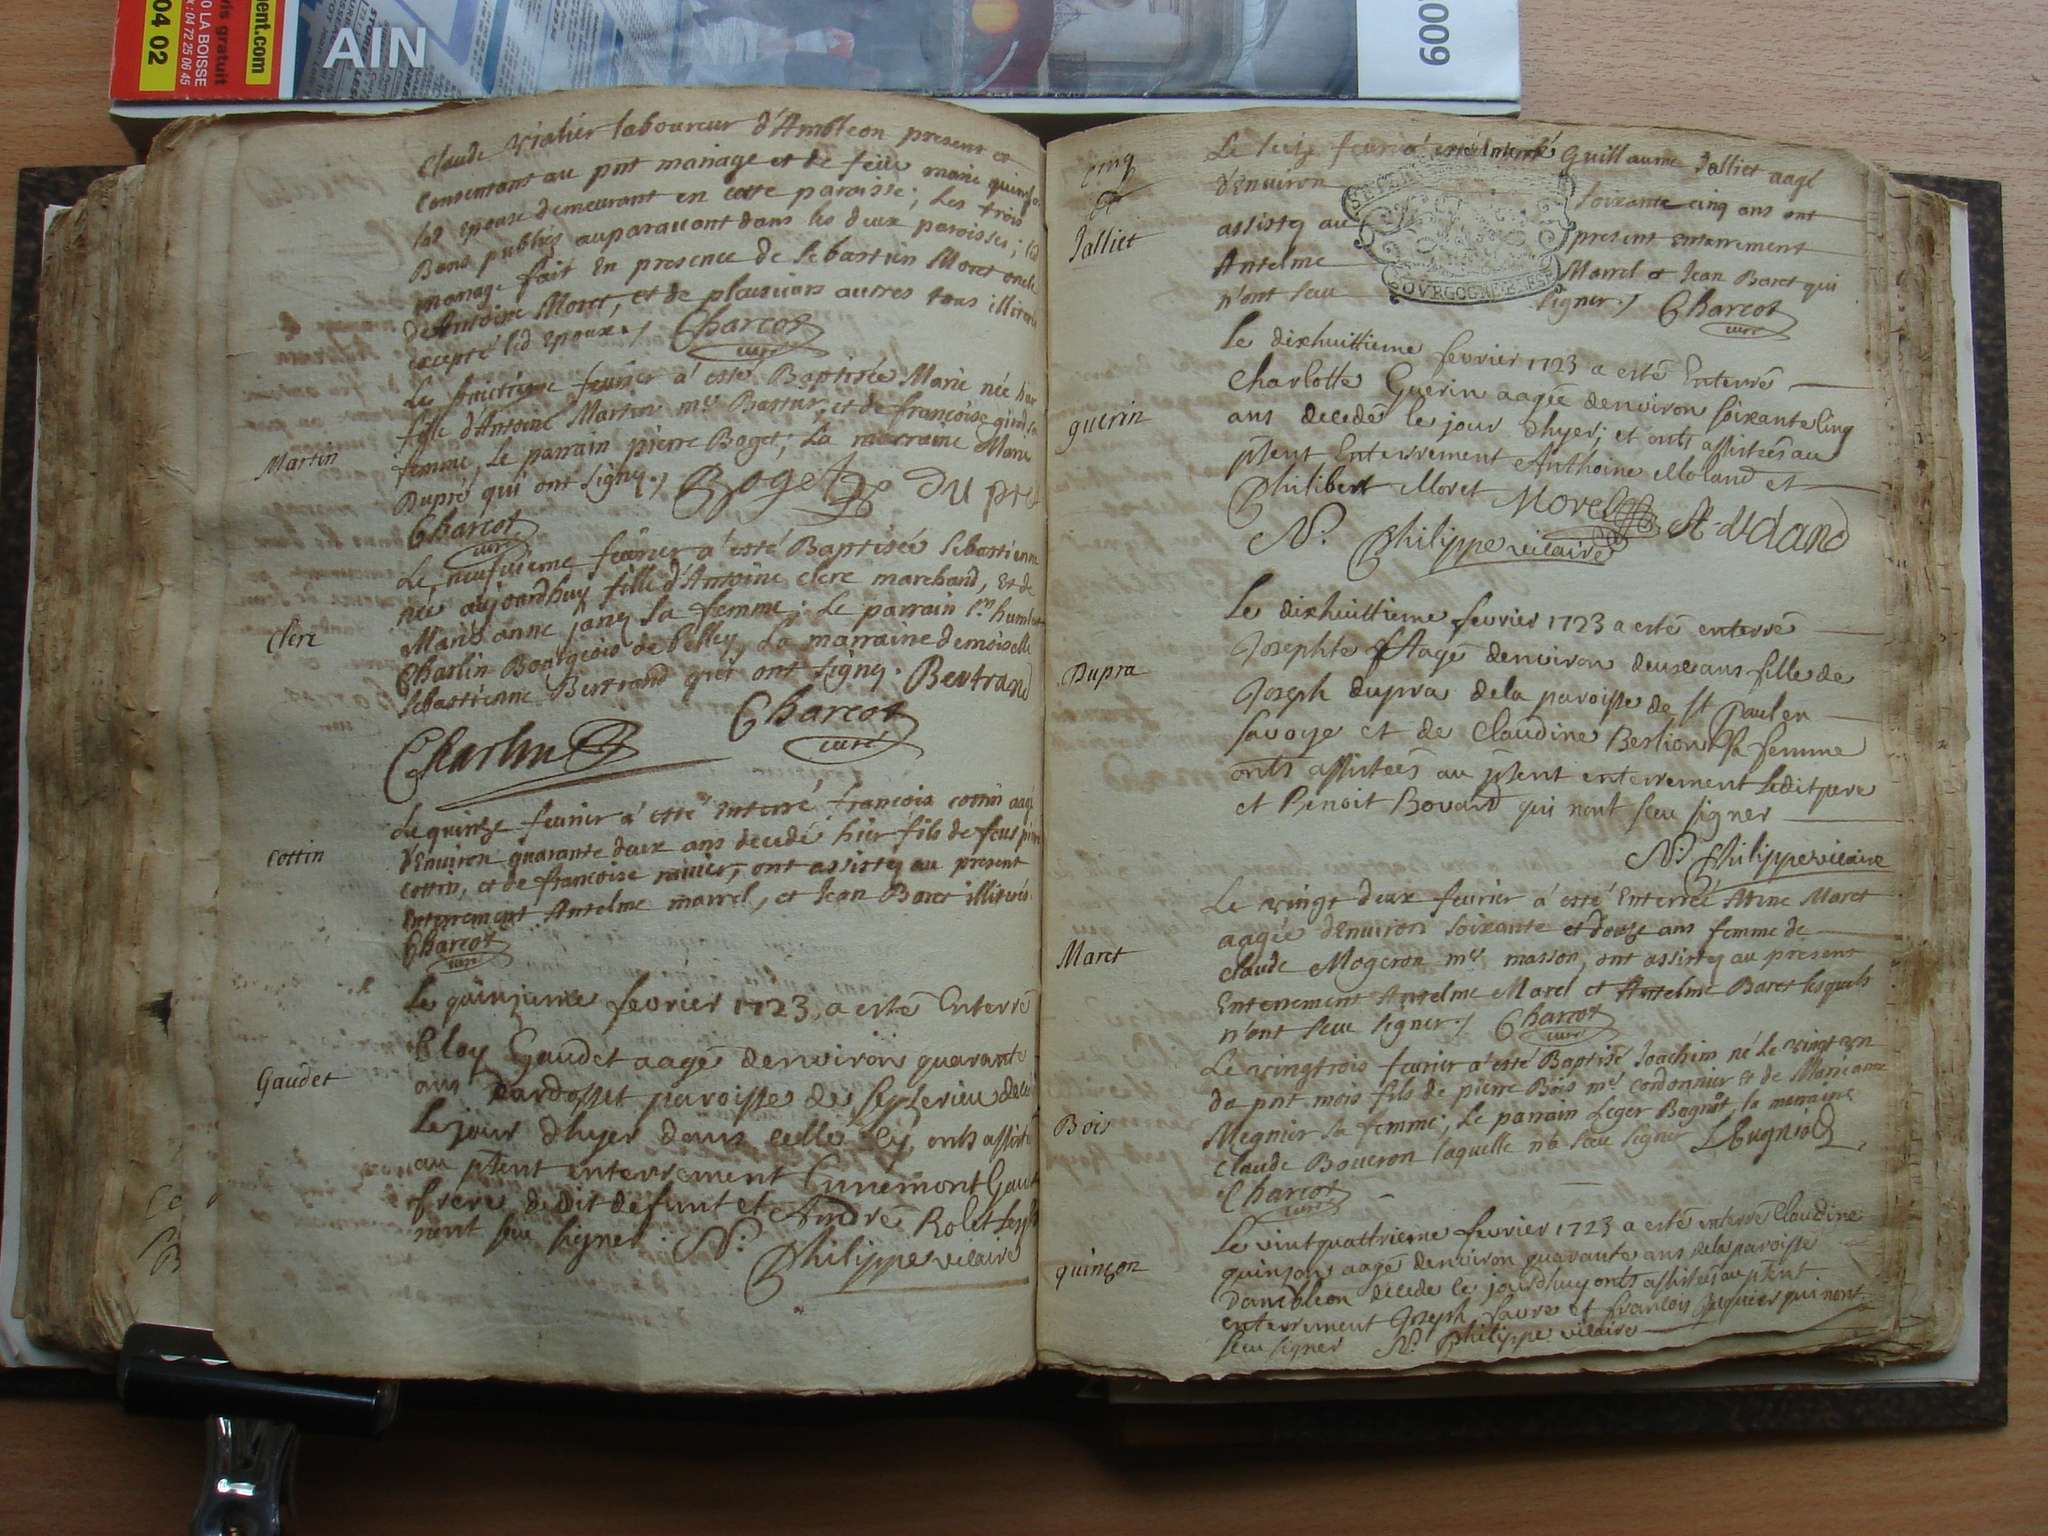 04 02
0 LA BOISSE
: 04 72 25 06 45
is gratuit
ent.com
AIN
2009
Claude vialier laboureur d'Ambleon present et
Consentant au pnt mariage et de feüe marie
lad epouse demeurant en cette paroisse; Les trois
Bans publiés auparauant dans les deux paroisses; led
mariage fait En presence de Sebastien Moret oncle
d'Antoine Moret, et de plusieurs autres tous illiterés
excepté led Epoux./ Charcot
curé
Martin
Le huictieme feurier a' esté Baptisée Marie née hier
fille d'Antoine Martin mre et de françoise
femme, Le parrain pierre Boget; La marraine Marie
Dupré qui ont signy./ Boget Du pré
Charcot
curé
Clerc
Le neufuieme feürier a' esté Baptisée Sebastienne
née aujourdhuy fille d'Antoine clerc marchand, et de
Marie anne janey sa femme; Le parrain Sr humbert
Charlin Bourgeois de Belley, La marraine demoiselle
Sebastienne Bertrand qui ont signy. Bertrand
Charlin Charcot
curé
Cottin
Le quinze feurier a' esté Enterré françois cottin aagé
d'Enuiron quarante deux ans decedé hier fils de feus pierre
Cottin, et de françoise ranier, ont assistey au present
Enterrement Antelme marrel, et Jean Baret illiterés
Charcot
curé
Gaudet
Le quinzieme fevrier 1723, a esté Enterré
Eloy Gaudet aagé denviron quarante
ans paroisse de
Le jour dhyer dans celle cy, onts assisté
au pnt enterrement Ennemont Gaudet
frere dudit defunt et André Rolet
nont sceu signer. N. Philippe vicaire
cinq
et
Jalliet
Le seize feurier a' esté Enterré Guillaume Jalliet aagé
d'Enuiron soixante cinq ans ont
assistey au present Enterrement
Antelme Marrel et Jean Baret qui
n'ont sceu signer./ Charcot
curé
guerin
Le dixhuittieme fevrier 1723 a esté Enterré
Charlotte Guerin aagée denviron soixante cinq
ans decedé le jour dhyer; et onts assistées au
pnt Enterrement Anthoine Moland et
Philibert Moret Morel A. Moland
N. Philippe vicaire
Dupra
Le dixhuittieme fevrier 1723 a esté enterré
Josephte aagé denviron deux ans fille de
Joseph dupra dela paroisse de st Paul en
savoye et de Claudine Berlion sa femme
onts assistées au pnt enterrement Ledit pere
et Benoit Bovard qui nont sceu signer
N. Philippe vicaire
Maret
Le vingt deux feurier a' esté Enterrée Anne Maret
aagée d'Enuiron soixante et douze ans femme de
Claude Mogeron mre masson, ont assistey au present
Enterrement Antelme Marel et Antelme Baret lesquels
n'ont sceu signer./ Charcot
curé
Bois
Le vingtrois feurier a' esté Baptisé Joachim né Le vingt un
du pnt mois fils de pierre Bois mre cordonnier et de Marieanne
Megnier sa femme; Le parrain Leger Bugniot, la marraine
Claude Boueron laquelle n'a sceu signer L Bugniot
Charcot
curé
quinson
Le vintquattrieme fevrier 1723 a esté enterré Claudine
quinson aagé denviron quarante ans dela paroisse
dambleon decede le jourdhuy onts assistées au pnt
enterrement Joseph favre et francois qui nont
sceu signer N. Philippe vicaire